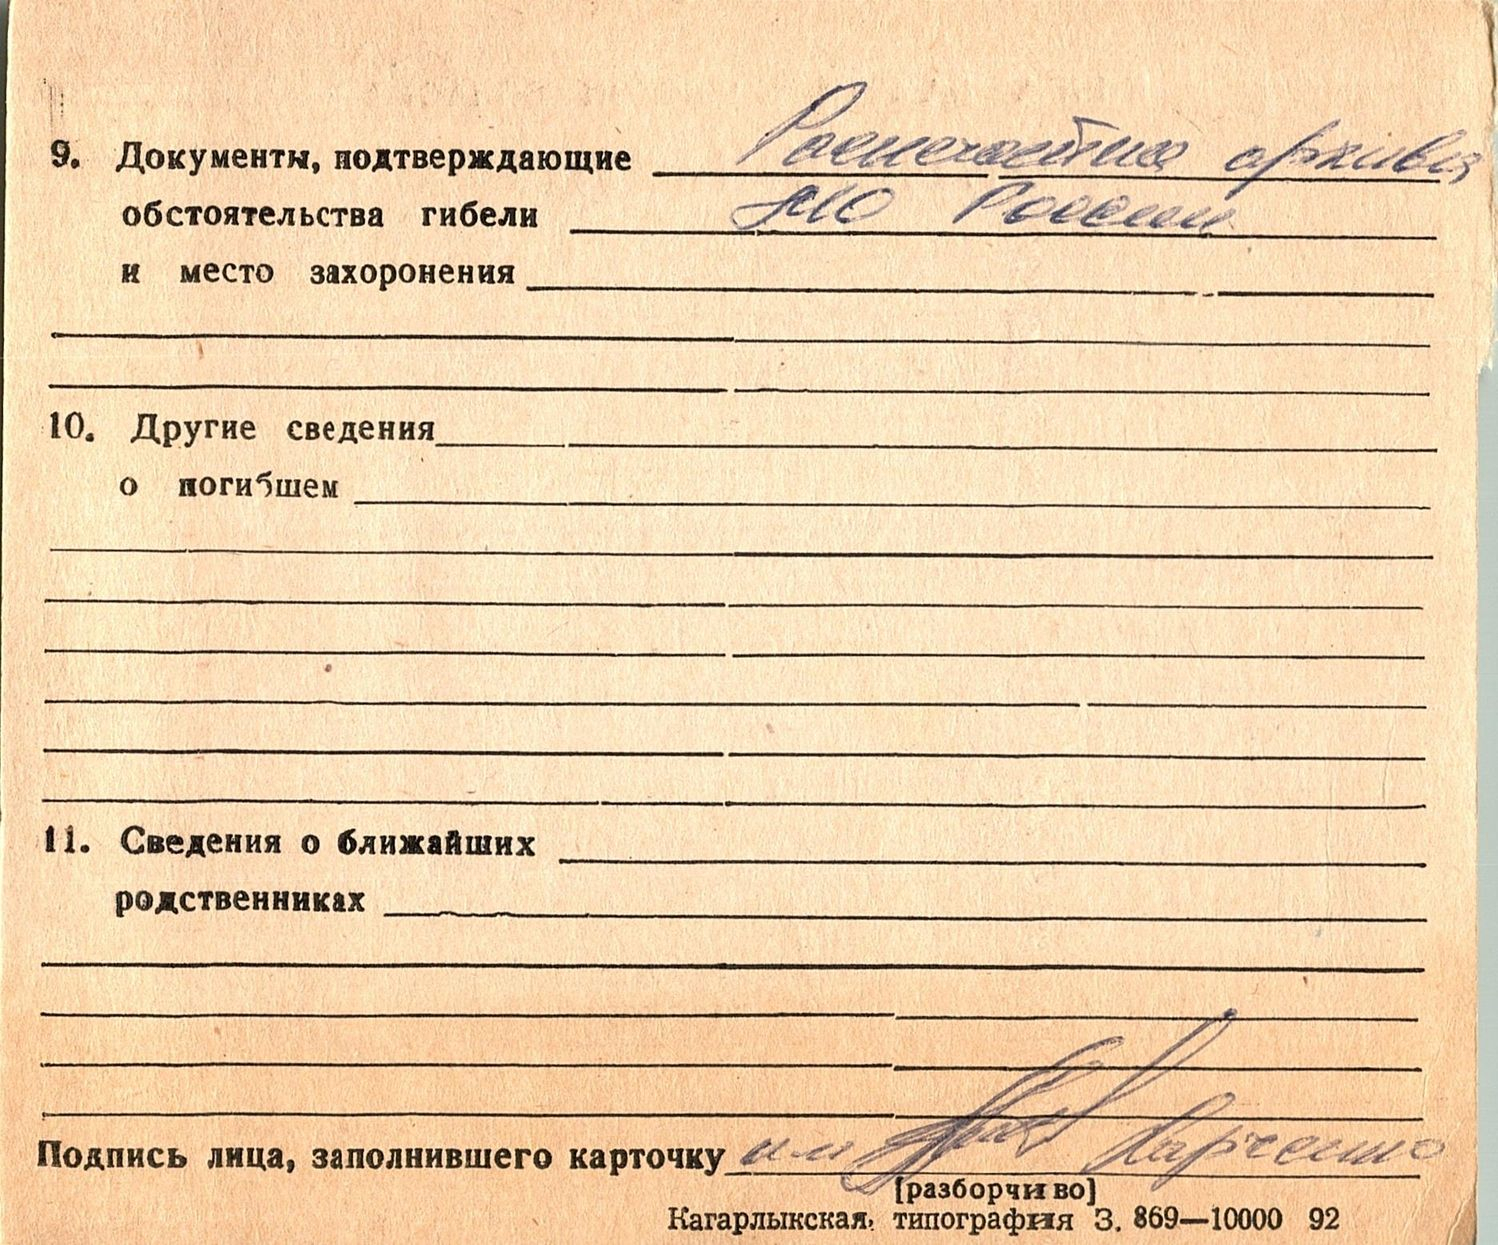 9. Документы, подтверждающие Распечатка архива
обстоятельства гибели МО России
и место захоронения
10. Другие сведения
о погибшем
11. Сведения о ближайших
родственниках
Подпись лица, заполнившего карточку
[разборчиво]
Кагарлыкская, типография З. 869—10000 92